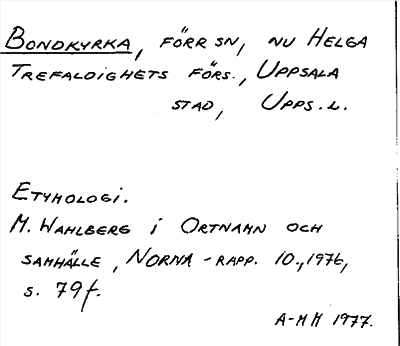 BONDKYRKA, FÖRR SN, NU HELGA
TREFALDIGHETS FÖRS., UPPSALA
STAD, UPPS. L.
ETYMOLOGI.
M. WAHLBERG i ORTNAMN OCH
SAMHÄLLE, NORNA-RAPP. 10., 1976,
s. 79f.
A-MH 1977.